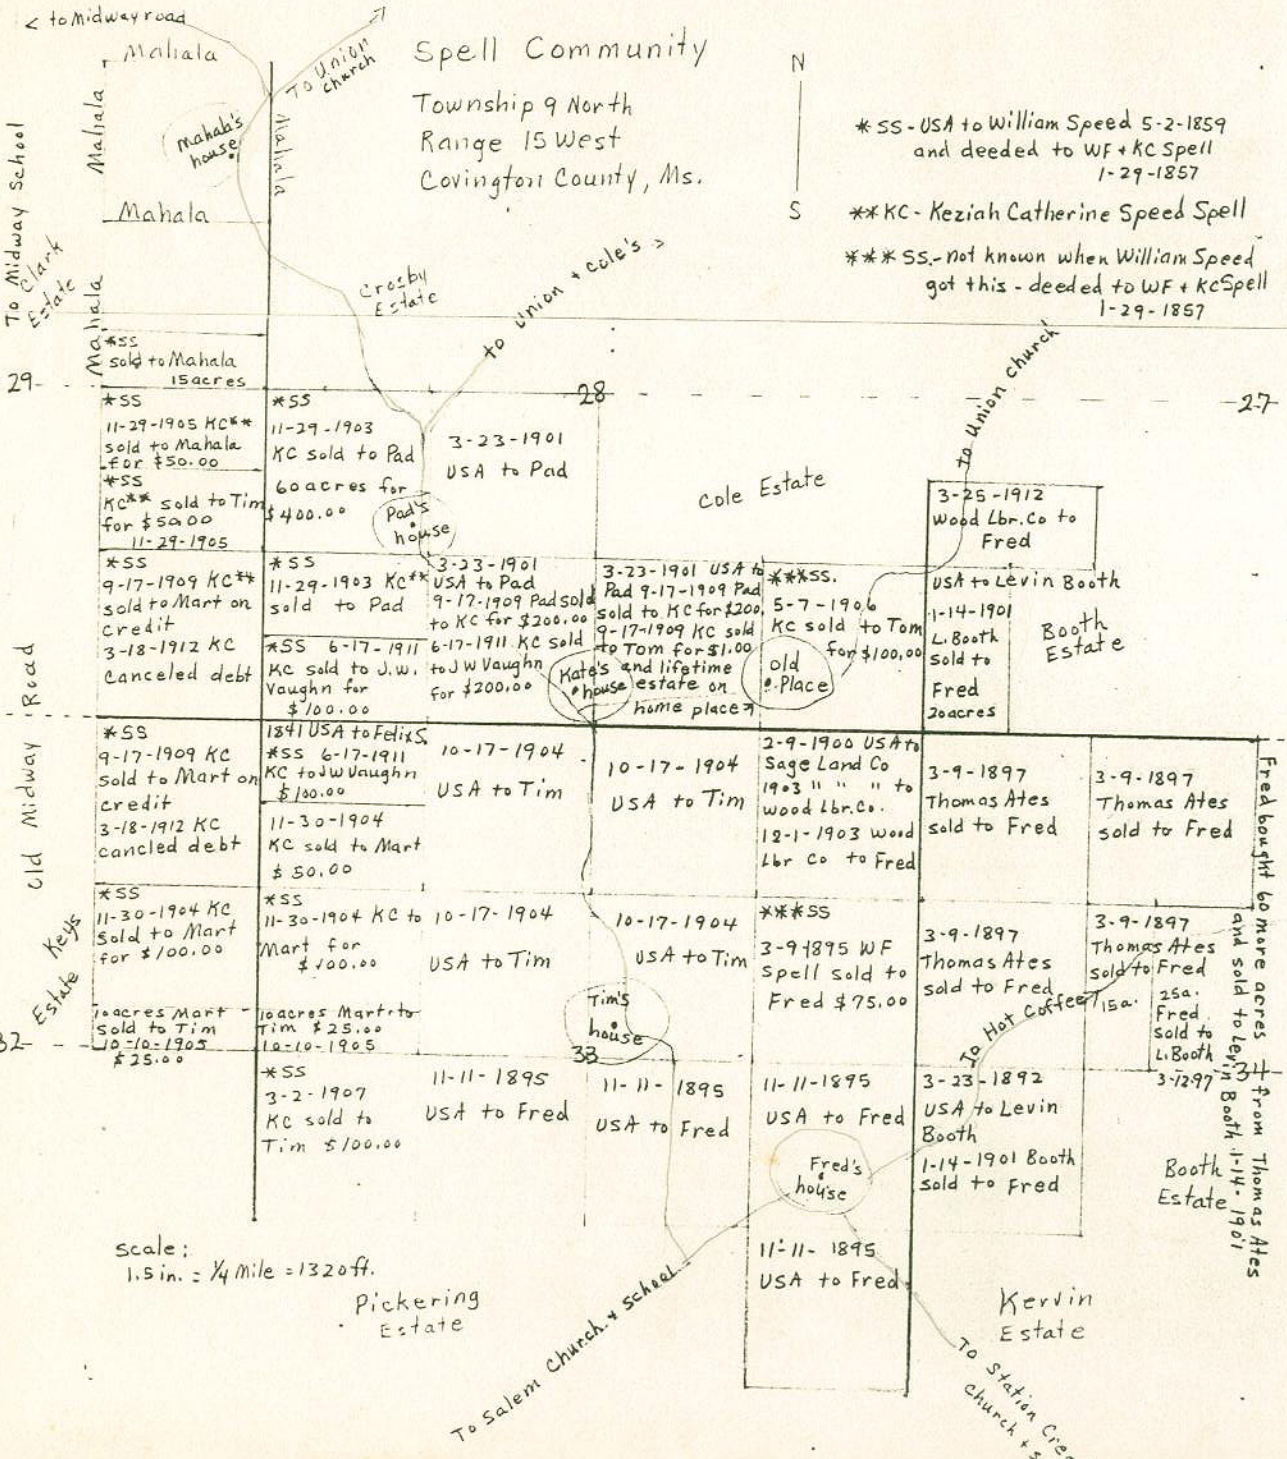 < to Midway road
Mahala
To Union
church
Spell Community
Township 9 North
Range 15 West
Covington County, Ms.
N
S
* SS - USA to William Speed 5-2-1859
and deeded to WF + KC Spell
1-29-1857
** KC - Keziah Catherine Speed Spell
*** SS. - not known when William Speed
got this - deeded to WF + KC Spell
1-29-1857
To Midway School
Mahala
Mahala's
house
Mahala
Mahala
Clark
Estate
Mahala
Crosby
Estate
to Union + Cole's >
to Union church
*SS
sold to Mahala
15 acres
29
28
27
*SS
11-29-1905 KC**
sold to Mahala
for $50.00
*SS
KC** sold to Tim
for $50.00
11-29-1905
*SS
11-29-1903
KC sold to Pad
60 acres for
$400.00
Pad's
house
3-23-1901
USA to Pad
Cole Estate
3-25-1912
Wood Lbr. Co to
Fred
*SS
9-17-1909 KC**
sold to Mart on
credit
3-18-1912 KC
canceled debt
*SS
11-29-1903 KC**
sold to Pad
*SS 6-17-1911
KC sold to J.W.
Vaughn for
$100.00
3-23-1901
USA to Pad
9-17-1909 Pad sold
to KC for $200.00
6-17-1911 KC sold
to JW Vaughn
for $200.00
3-23-1901 USA to
Pad 9-17-1909 Pad
sold to KC for $200.
9-17-1909 KC sold
to Tom for $1.00
and lifetime
estate on
home place
Kate's
house
***SS.
5-7-1906
KC sold to Tom
for $100.00
old
Place
USA to Levin Booth
1-14-1901
L. Booth
sold to
Fred
20 acres
Booth
Estate
Old Midway Road
*SS
9-17-1909 KC
sold to Mart on
credit
3-18-1912 KC
cancled debt
1841 USA to Felix S.
*SS 6-17-1911
KC to JW Vaughn
$100.00
11-30-1904
KC sold to Mart
$50.00
10-17-1904
USA to Tim
10-17-1904
USA to Tim
2-9-1900 USA to
Sage Land Co
1903 " " " to
Wood Lbr. Co.
12-1-1903 Wood
Lbr Co to Fred
3-9-1897
Thomas Ates
sold to Fred
3-9-1897
Thomas Ates
sold to Fred
Fred bought 60 more acres from Thomas Ates
and sold to Levin Booth 1-14-1901
Keys
Estate
*SS
11-30-1904 KC
sold to Mart
for $100.00
10 acres Mart
sold to Tim
10-10-1905
$25.00
*SS
11-30-1904 KC to
Mart for
$100.00
10 acres Mart to
Tim $25.00
10-10-1905
10-17-1904
USA to Tim
10-17-1904
USA to Tim
Tim's
house
***SS
3-9-1895 WF
Spell sold to
Fred $75.00
3-9-1897
Thomas Ates
sold to Fred
To Hot Coffee
3-9-1897
Thomas Ates
sold to Fred
15a.
25a.
Fred
sold to
L. Booth
3-12-97
32
33
34
*SS
3-2-1907
KC sold to
Tim $100.00
11-11-1895
USA to Fred
11-11-1895
USA to Fred
11-11-1895
USA to Fred
Fred's
house
3-23-1892
USA to Levin
Booth
1-14-1901 Booth
sold to Fred
Booth
Estate
11-11-1895
USA to Fred
scale:
1.5 in. = 1/4 Mile = 1320 ft.
Pickering
Estate
To Salem Church + School
Kervin
Estate
To Station
church +